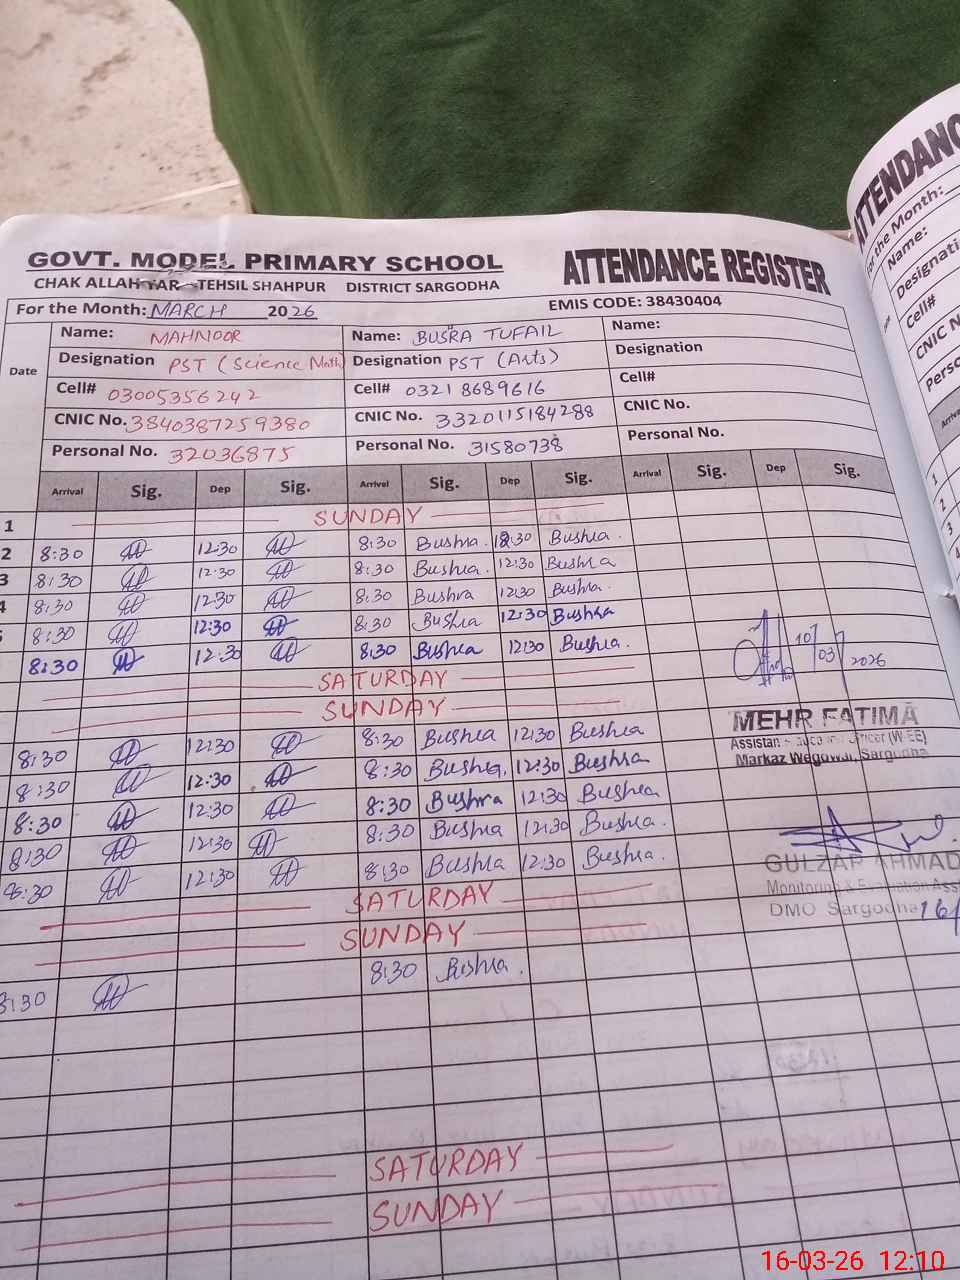 GOVT. MODEL PRIMARY SCHOOL ATTENDANCE REGISTER
CHAK ALLAH YAR TEHSIL SHAHPUR DISTRICT SARGODHA
For the Month: MARCH 2026 EMIS CODE: 38430404
Date
Name: MAHNOOR Name: BUSRA TUFAIL Name:
Designation PST (Science Math) Designation PST (Arts) Designation
Cell# 03005356242 Cell# 03218689616 Cell#
CNIC No. 3840387259380 CNIC No. 3320115184288 CNIC No.
Personal No. 32036875 Personal No. 31580738 Personal No.
Arrival Sig. Dep Sig. Arrival Sig. Dep Sig. Arrival Sig. Dep Sig.
1 SUNDAY
2 8:30 12:30 8:30 Bushra. 12:30 Bushra.
3 8:30 12:30 8:30 Bushra. 12:30 Bushra.
4 8:30 12:30 8:30 Bushra 12:30 Bushra.
8:30 12:30 8:30 Bushra 12:30 Bushra
8:30 12:30 8:30 Bushra 12:30 Bushra.
SATURDAY
SUNDAY
8:30 12:30 8:30 Bushra 12:30 Bushra
8:30 12:30 8:30 Bushra. 12:30 Bushra
8:30 12:30 8:30 Bushra 12:30 Bushra
8:30 12:30 8:30 Bushra 12:30 Bushra.
8:30 12:30 8:30 Bushra 12:30 Bushra.
SATURDAY
SUNDAY
8:30 8:30 Bushra.
SATURDAY
SUNDAY
10/03/2026
MEHR FATIMA
Markaz Wegowal, Sargodha
GULZAR AHMAD
Monitoring & Evaluation
DMO Sargodha 16/
ATTENDANC
For the Month:
Name:
Designati
Cell#
CNIC
Perso
Arriva
1
2
3
4
16-03-26 12:10